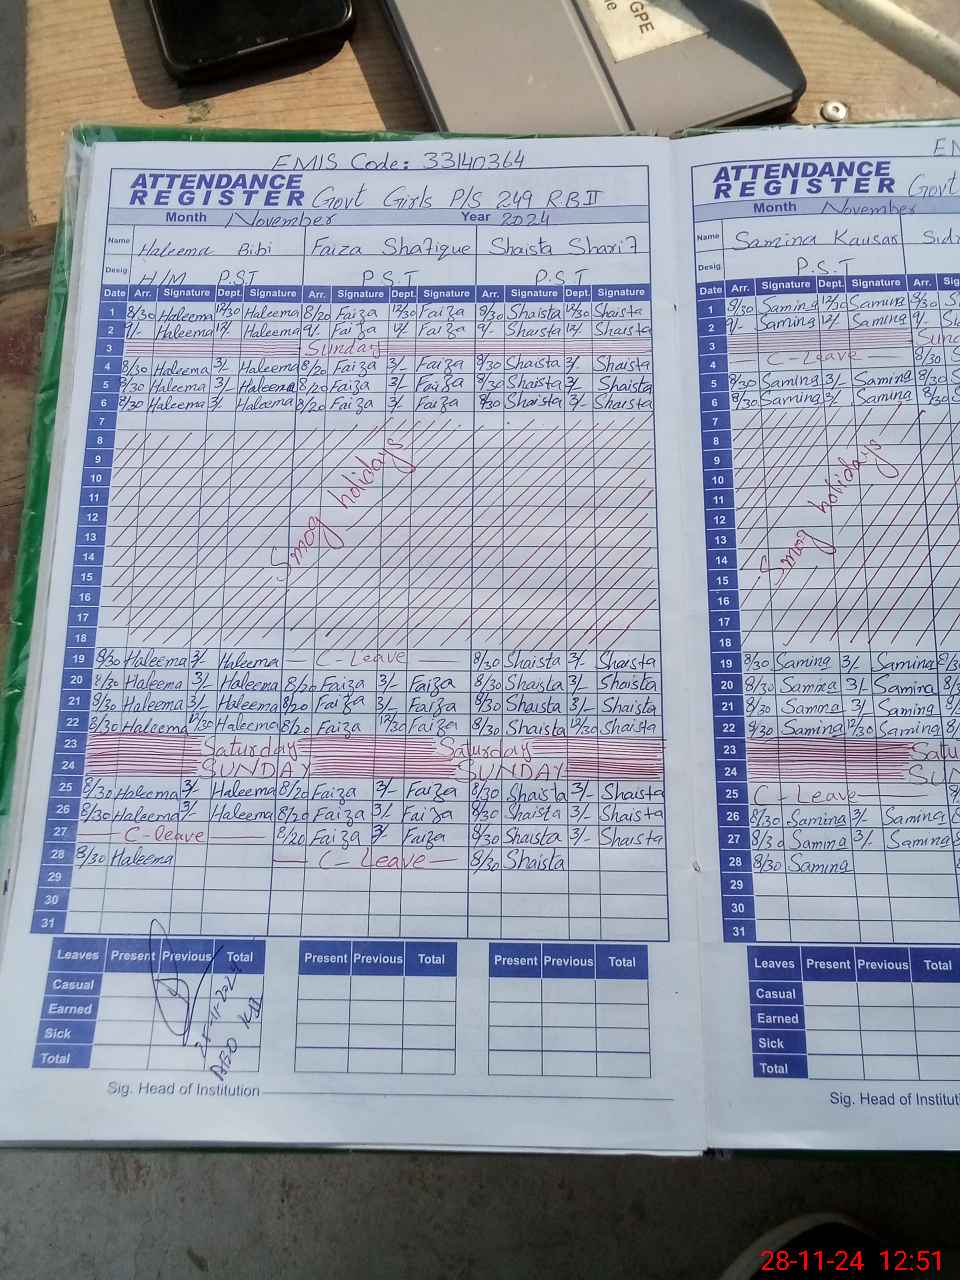 GPE
EMIS Code: 33140364
ATTENDANCE REGISTER Govt Girls P/S 249 RB II
Month November Year 2024
Name Haleema Bibi Faiza Shafique Shaista Sharif
Desig H/M P.S.T P.S.T P.S.T
Date Arr. Signature Dept. Signature Arr. Signature Dept. Signature Arr. Signature Dept. Signature
1 8/30 Haleema 12/30 Haleema 8/20 Faiza 12/30 Faiza 8/30 Shaista 12/30 Shaista
2 9/- Haleema 12/- Haleema 9/- Faiza 12/- Faiza 9/- Shaista 12/- Shaista
3 Sunday
4 8/30 Haleema 3/- Haleema 8/20 Faiza 3/- Faiza 8/30 Shaista 3/- Shaista
5 8/30 Haleema 3/- Haleema 8/20 Faiza 3/- Faiza 8/30 Shaista 3/- Shaista
6 8/30 Haleema 3/- Haleema 8/20 Faiza 3/- Faiza 8/30 Shaista 3/- Shaista
7
8
9
10
11
12
13
14
15
16
17
18
Smog holidays
19 8/30 Haleema 3/- Haleema — C-Leave — 8/30 Shaista 3/- Shaista
20 8/20 Haleema 3/- Haleema 8/20 Faiza 3/- Faiza 8/30 Shaista 3/- Shaista
21 8/30 Haleema 3/- Haleema 8/20 Faiza 3/- Faiza 8/30 Shaista 3/- Shaista
22 8/30 Haleema 12/30 Haleema 8/20 Faiza 12/30 Faiza 8/30 Shaista 12/30 Shaista
23 Saturday Saturday
24 SUNDAY SUNDAY
25 8/30 Haleema 3/- Haleema 8/20 Faiza 3/- Faiza 8/30 Shaista 3/- Shaista
26 8/30 Haleema 3/- Haleema 8/20 Faiza 3/- Faiza 8/30 Shaista 3/- Shaista
27 — C-leave — 8/20 Faiza 3/- Faiza 8/30 Shaista 3/- Shaista
28 8/30 Haleema — C-Leave — 8/30 Shaista
29
30
31
Leaves Present Previous Total Present Previous Total Present Previous Total
Casual
Earned
Sick
Total
Sig. Head of Institution
ATTENDANCE REGISTER Govt
Month November
Name Samina Kausar
Desig. P.S.T
Date Arr. Signature Dept. Signature Arr.
1 8/30 Samina 12/30 Samina 8/30
2 9/- Samina 12/- Samina 9/-
3
4 — C-Leave — 8/30
5 8/30 Samina 3/- Samina 8/30
6 8/30 Samina 3/- Samina 8/30
7
8
9
10
11
12
13
14
15
16
17
18
Smog holidays
19 8/30 Samina 3/- Samina
20 8/30 Samina 3/- Samina
21 8/30 Samina 3/- Samina
22 8/30 Samina 12/30 Samina
23
24
25 C-Leave
26 8/30 Samina 3/- Samina
27 8/30 Samina 3/- Samina
28 8/30 Samina
29
30
31
Leaves Present Previous Total
Casual
Earned
Sick
Total
Sig. Head of
28-11-24 12:51